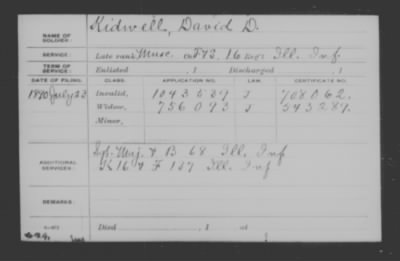 NAME OF SOLDIER: Kidwell, David D.
SERVICE: Late rank Musc. Co. F & S, 16 Reg't Ill. Inf.
TERM OF SERVICE: Enlisted , 1 Discharged , 1
DATE OF FILING. CLASS. APPLICATION NO. LAW. CERTIFICATE NO.
1890 July 23 Invalid, J 708062.
Widow, 756093 J 543287.
Minor,
ADDITIONAL SERVICES: Sgt. Maj. & B 68 Ill. Inf
K 16 & F 137 Ill. Inf
REMARKS:
Died , 1 at